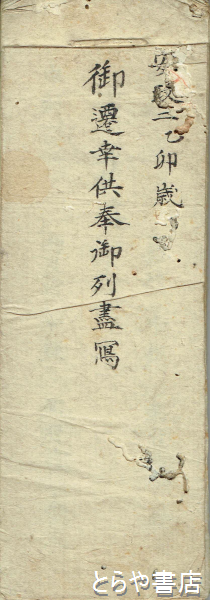 安政二乙卯歳
御遷幸供奉御列盡冩
とらや書店